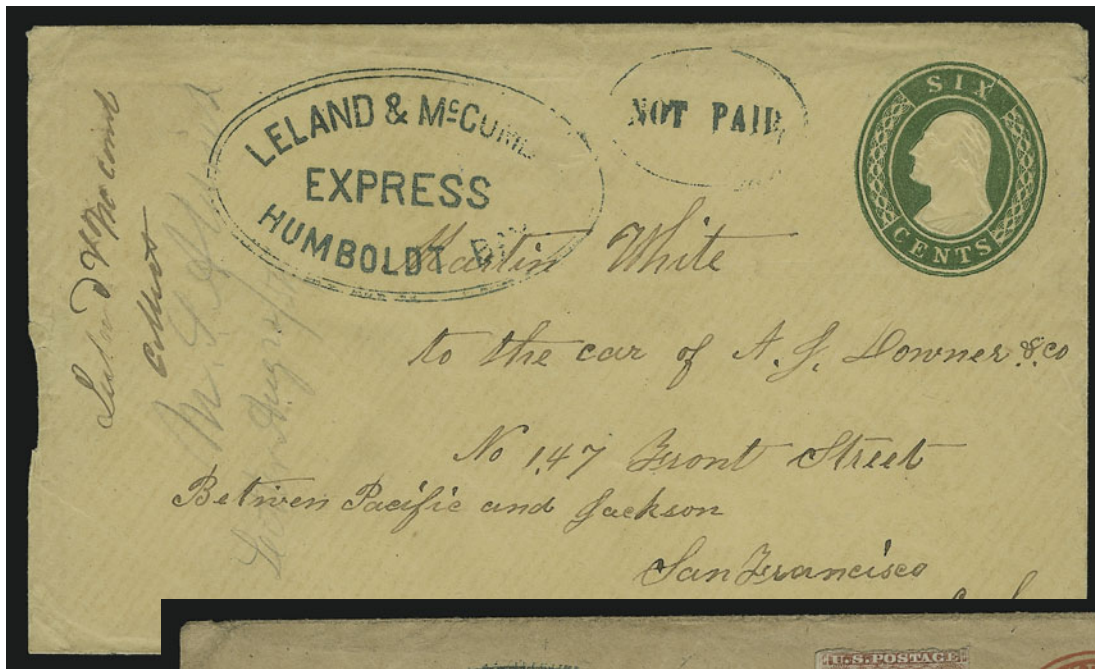 LELAND & McCUM
EXPRESS
HUMBOLDT BAY
NOT PAID
SIX
CENTS
Martin White
to the car of A. J. Downer & co
No 147 Front Street
Between Pacific and Jackson
San Francisco
collect
U.S. POSTAGE